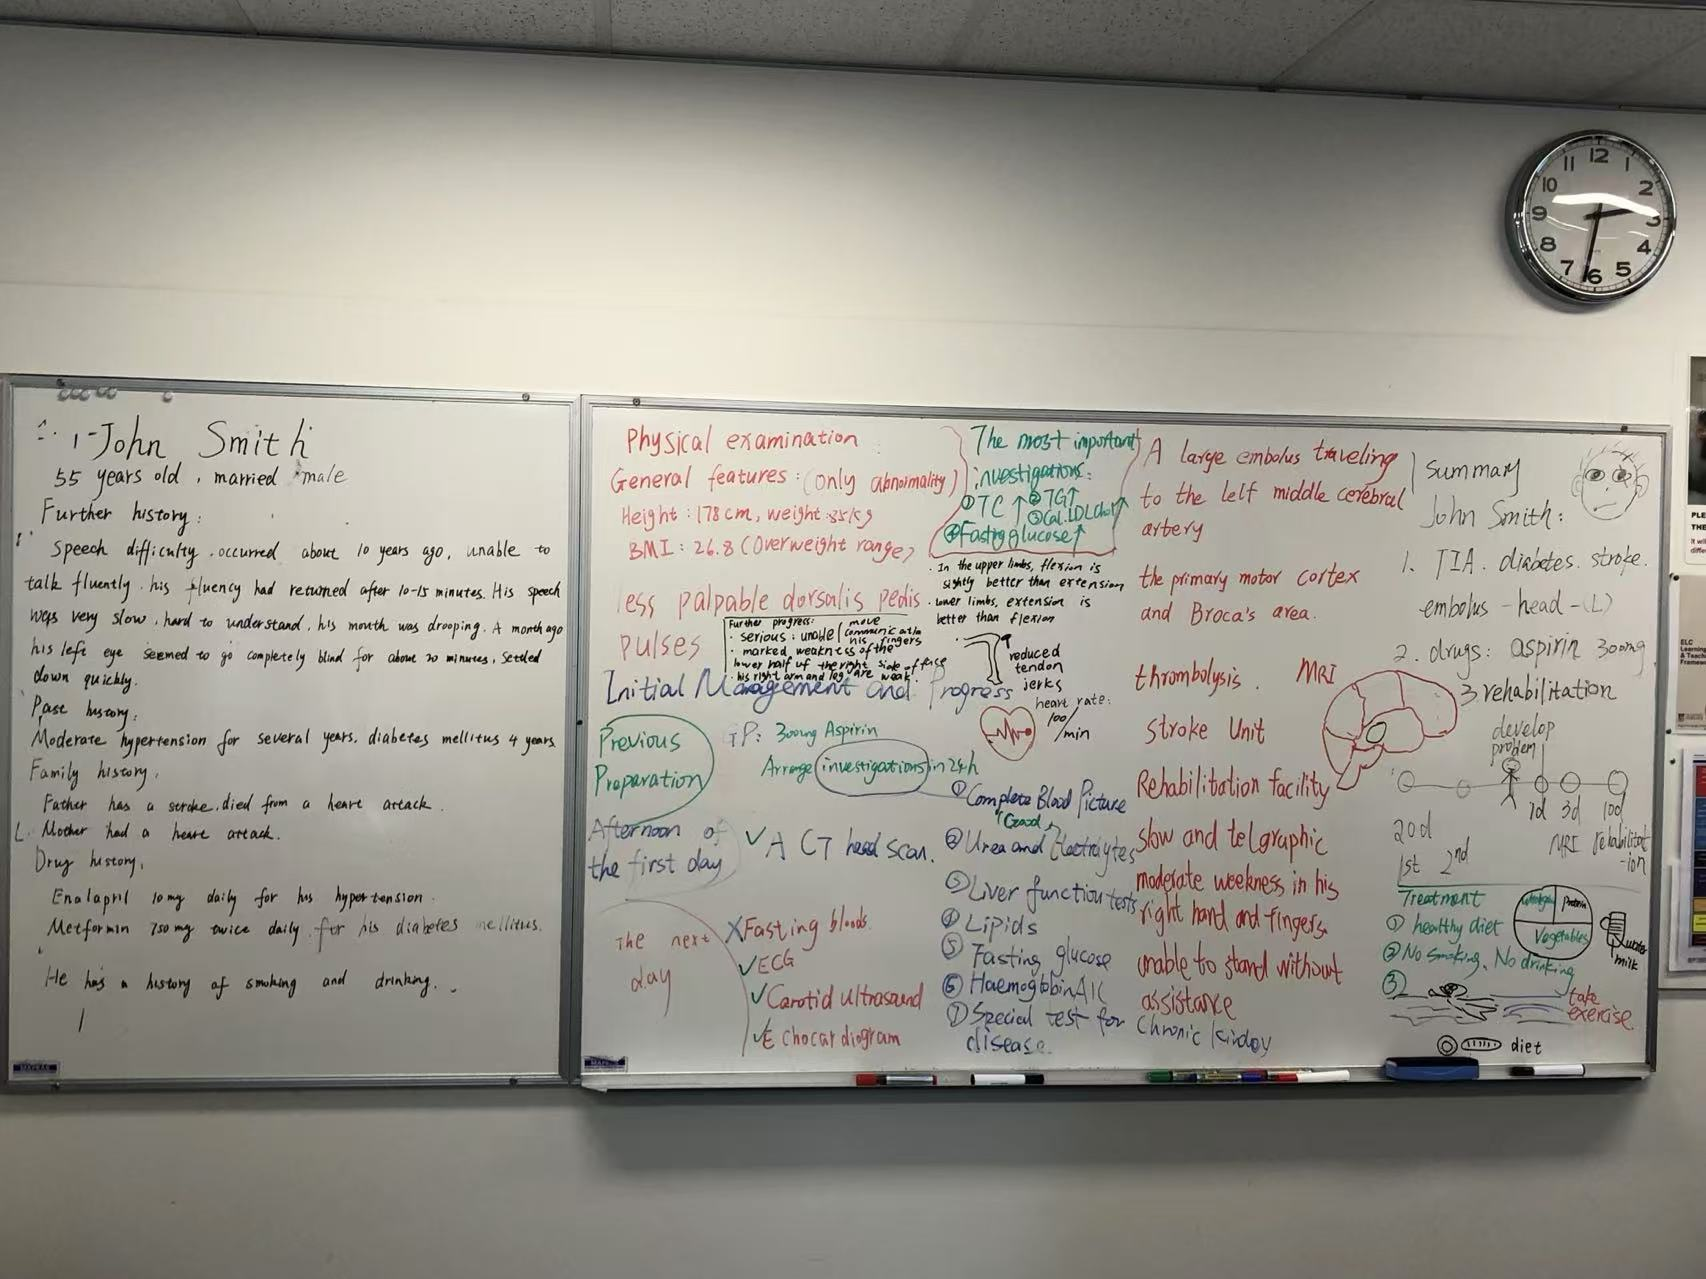 John Smith
55 years old, married male
Further history:
Speech difficulty, occurred about 10 years ago, unable to
talk fluently. his fluency had returned after 10-15 minutes. His speech
was very slow, hard to understand, his mouth was drooping. A month ago
his left eye seemed to go completely blind for about 20 minutes, settled
down quickly.
Past history:
Moderate hypertension for several years, diabetes mellitus 4 years.
Family history,
Father has a stroke, died from a heart attack.
Mother had a heart attack.
Drug history,
Enalapril 10mg daily for his hypertension.
Metformin 750mg twice daily for his diabetes mellitus.
He has a history of smoking and drinking.
Physical examination
General features: (only abnormality)
Height: 178cm, weight: 85kg
BMI: 26.8 (Overweight range)
less palpable dorsalis pedis
pulses
Further progress:
· serious: unable move communicate
his fingers
· marked weakness of the
lower half of the right side of face
· his right arm and leg are weak
The most important
investigations:
① TC ↑ ② TG↑
③ Cal. LDL Chol ↑
④ Fasting glucose ↑
· In the upper limbs, flexion is
slightly better than extension
· lower limbs, extension is
better than flexion
reduced
tendon
jerks
heart rate:
100
/min
Initial Management and Progress
Previous
Preparation
GP: 300mg Aspirin
Arrange investigations in 24h
Afternoon of
the first day
✓ A CT head scan.
The next
day
X Fasting bloods.
✓ ECG
✓ Carotid ultrasound
✓ Echocardiogram
① Complete Blood Picture
Good
② Urea and Electrolytes
③ Liver function tests
④ Lipids
⑤ Fasting glucose
⑥ Haemoglobin A1c
⑦ Special test for Chronic kindey
disease.
A large embolus traveling
to the lelf middle cerebral
artery
the primary motor cortex
and Broca's area.
thrombolysis. MRI
Stroke Unit
Rehabilitation facility
slow and telgraphic
moderate weekness in his
right hand and fingers.
unable to stand without
assistance
Summary
John Smith:
1. TIA. diabetes. stroke.
embolus - head - (L)
2. drugs: aspirin 300mg
3 rehabilitation
develop
problem
1d 3d 10d
20d
1st 2nd
MRI rehabilitat
-ion
Treatment
① healthy diet
② No smoking, No drinking
③
protein
Vegetables
water
milk
take
exercise.
diet
12
1
2
3
4
5
6
7
8
9
10
11